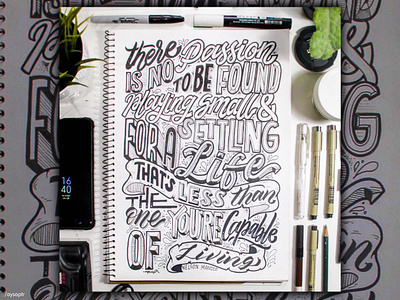 there Passion
IS NO TO BE FOUND
Playing Small &
FOR A SETTLING
Life
THAT'S LESS than
THE one YOU'RE Capable
OF Living
NELSON MANDELA
16
40
/aysopfr